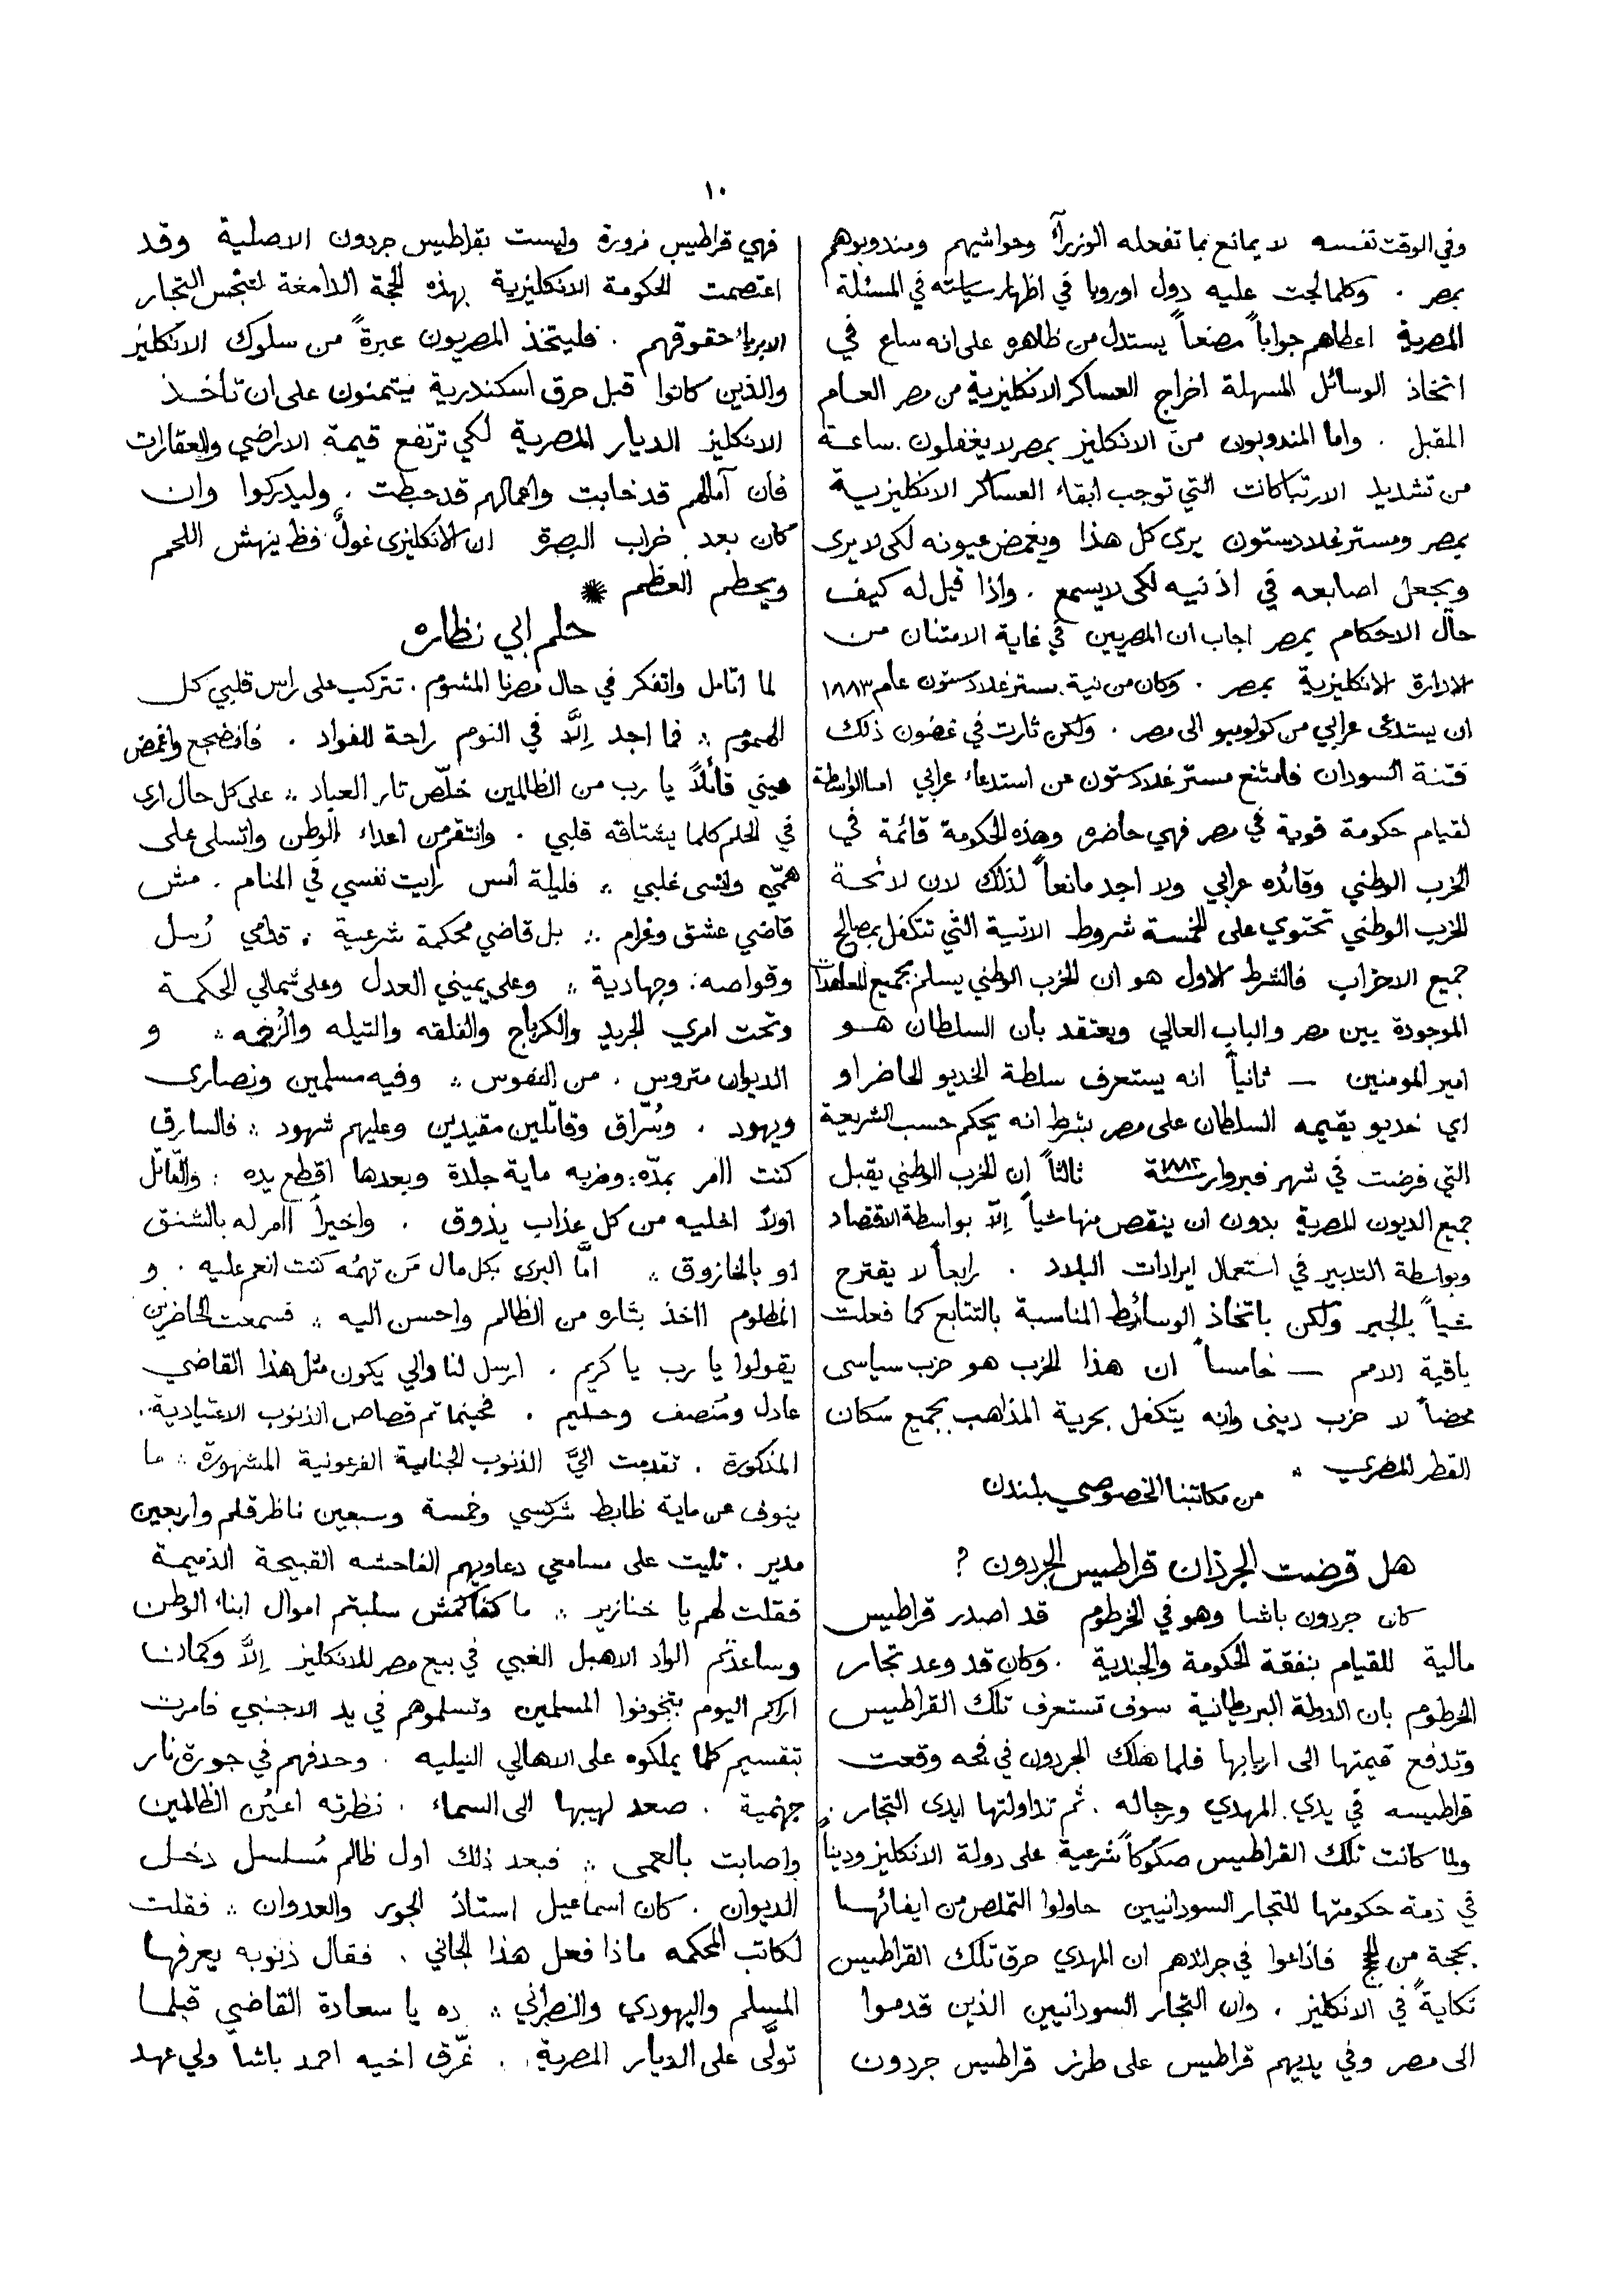 ١٠
وفي الوقت نفسه لا يمانع بما تفعله الوزرآء وحواشيهم ومندوبوهم
بمصر . وكلما لجت عليه دول اوروبا في اظهار سياسته في المسئلة
المصرية اعطاهم جواباً مضعاً يستدل من ظاهره على انه ساع في
اتخاذ الوسائل المسهلة اخراج العساكر الانكليزية من مصر العام
المقبل . واما المندوبون من الانكليز بمصر لا يغفلون ساعة
من تشديد الارتباكات التي توجب ابقاء العساكر الانكليزية
بمصر ومستر غلادستون يرى كل هذا ويغمض عيونه لكى لا يرى
ويجعل اصابعه في اذنيه لكى لا يسمع . واذا قيل له كيف
حال الاحكام بمصر اجاب ان المصريين في غاية الامتنان من
الادارة الانكليزية بمصر . وكان من نية مستر غلادستون عام ١٨٨٣
ان يستدعى عرابي من كولومبو الى مصر . ولكن ثارت في غضون ذلك
فتنة السودان فامتنع مستر غلادستون عن استدعاء عرابي اما الواسطة
لقيام حكومة قوية في مصر فهي حاضره وهذه الحكومة قائمة في
الحزب الوطني وقائده عرابي ولا اجد مانعاً لذلك لان لائحة
الحزب الوطني تحتوي على الخمسة شروط الاتية التي تتكفل بمصالح
جميع الاحزاب فالشرط الاول هو ان الحزب الوطني يسلم بجميع المعاهدات
الموجودة بين مصر والباب العالي ويعتقد بان السلطان هو
امير المومنين — ثانياً انه يستعرف سلطة الخديو الحاضر او
اي خديو يقيمه السلطان على مصر بشرط انه يحكم حسب الشريعة
التي فرضت في شهر فبروار سنة ١٨٨٢ ثالثاً ان الحزب الوطني يقبل
جميع الديون المصرية بدون ان ينقص منها شياً إلّا بواسطة الاقتصاد
وبواسطة التدبير في استعمال ايرادات البلاد . رابعاً لا يقترح
شياً بالجبر ولكن باتخاذ الوسائط المناسبة بالتتابع كما فعلت
باقية الامم — خامساً ان هذا الحزب هو حزب سياسى
محضاً لا حزب دينى وانه يتكفل بحرية المذاهب بجميع سكان
القطر المصري ..
من مكاتبنا الخصوصي بلندن
هل قرضت الجرذان قراطيس الجردون ؟
كان جردون باشا وهو في الخرطوم قد اصدر قراطيس
مالية للقيام بنفقة الحكومة والجندية . وكان قد وعد تجار
الخرطوم بان الدولة البريطانية سوف تستعرف تلك القراطيس
وتدفع قيمتها الى اربابها فلما هلك الجردون في فحه وقعت
قراطيسه في يدي المهدي ورجاله . ثم تداولتها ايدى التجار .
ولما كانت تلك القراطيس صكوكاً شرعية على دولة الانكليز وديناً
في ذمة حكومتها للتجار السودانيين حاولوا التملص من ايفائها
بحجة من الحج فاذاعوا في جرائدهم ان المهدي حرق تلك القراطيس
نكايةً في الانكليز . وان التجار السودانيين الذين قدموا
الى مصر وفي يديهم قراطيس على طرز قراطيس جردون
فهي قراطيس مزورة وليست بقراطيس جردون الاصلية وقد
اعتصمت الحكومة الانكليزية بهذه الحجة الدامغة لتبخس التجار
الابرياء حقوقهم . فليتخذ المصريون عبرةً من سلوك الانكليز
والذين كانوا قبل حرق اسكندرية يتمنون على ان تأخذ
الانكليز الديار المصرية لكي ترتفع قيمة الاراضي والعقارات
فان آمالهم قد خابت واعمالهم قد حبطت . وليدركوا وان
كان بعد خراب البصرة ان الانكليزى غولٌ فظ ينهش اللحم
ويحطم العظم *
حلم ابي نظاره
لما اتامل واتفكر في حال مصرنا المشوم . تتركب على راس قلبي كل
الهموم .. فما اجد إلَّا في النوم راحة للفواد . فانضجع واغمض
عيني قائلاً يا رب من الظالمين خلّص تار العباد .. على كل حال ارى
في الحلم كلما يشتاقه قلبي . وانتقم من اعداء الوطن واتسلى على
همّي وانسى غلبي .. فليلة امس رايت نفسي في المنام . مش
قاضي عشق وغرام .. بل قاضي محكمة شرعية . قدامي رُسل
وقواصه : وجهادية .. وعلى يميني العدل وعلى شمالي الحكمة
وتحت امري الجريد والكرباج والفلقه والتيله والرُخمه .. و
الديوان متروس . من النفوس .. وفيه مسلمين ونصارى
ويهود . وسُرّاق وقاتلين مقيدين وعليهم شهود .. فالسارق
كنت اامر بمدّه : وضربه ماية جلدة وبعدها اقطع يده : والقاتل
اولاً اخليه من كل عذاب يذوق . واخيراً اامر له بالشنق
او بالخازوق .. امَّا البرى بكل مال مَن تهمُه كنت انعم عليه . و
المظلوم ااخذ بثاره من الظالم واحسن اليه .. فسمعت الحاضرين
يقولوا يا رب يا كريم . ارسل لنا والي يكون مثل هذا القاضي
عادل ومُنصف وحليم . فحينما تم قصاص الذنوب الاعتيادية .
المذكورة . تقدمت اليَّ الذنوب الجنايية الفرعونية المشهورة .. ما
ينوف عن ماية ظابط شركسي وخمسة وسبعين ناظر قلم واربعين
مدير . تليت على مسامعي دعاويهم الفاحشه القبيحة الذميمة
فقلت لهم يا خنازير .. ما كفاكمش سلبتم اموال ابناء الوطن
وساعدتم الواد الاهبل الغبي في بيع مصر للانكليز إلَّا وكمان
اراكم اليوم بتخونوا المسلمين وتسلموهم في يد الاجنبي فامرت
بتقسيم كلما يملكوه على الاهالي النيليه . وحدفهم في جورة نار
جهنمية . صعد لهيبها الى السماء . نظرته اعيُن الظالمين
واصابت بالعمى .. فبعد ذلك اول ظالم مُسلسل دخل
الديوان . كان اسماعيل استاذ الجور والعدوان .. فقلت
لكاتب المحكمه ماذا فعل هذا الجاني . فقال ذنوبه يعرفها
المسلم واليهودي والنصراني .. ده يا سعادة القاضي قبلما
تولَّى على الديار المصرية . غرَّق اخيه احمد باشا ولي عهد